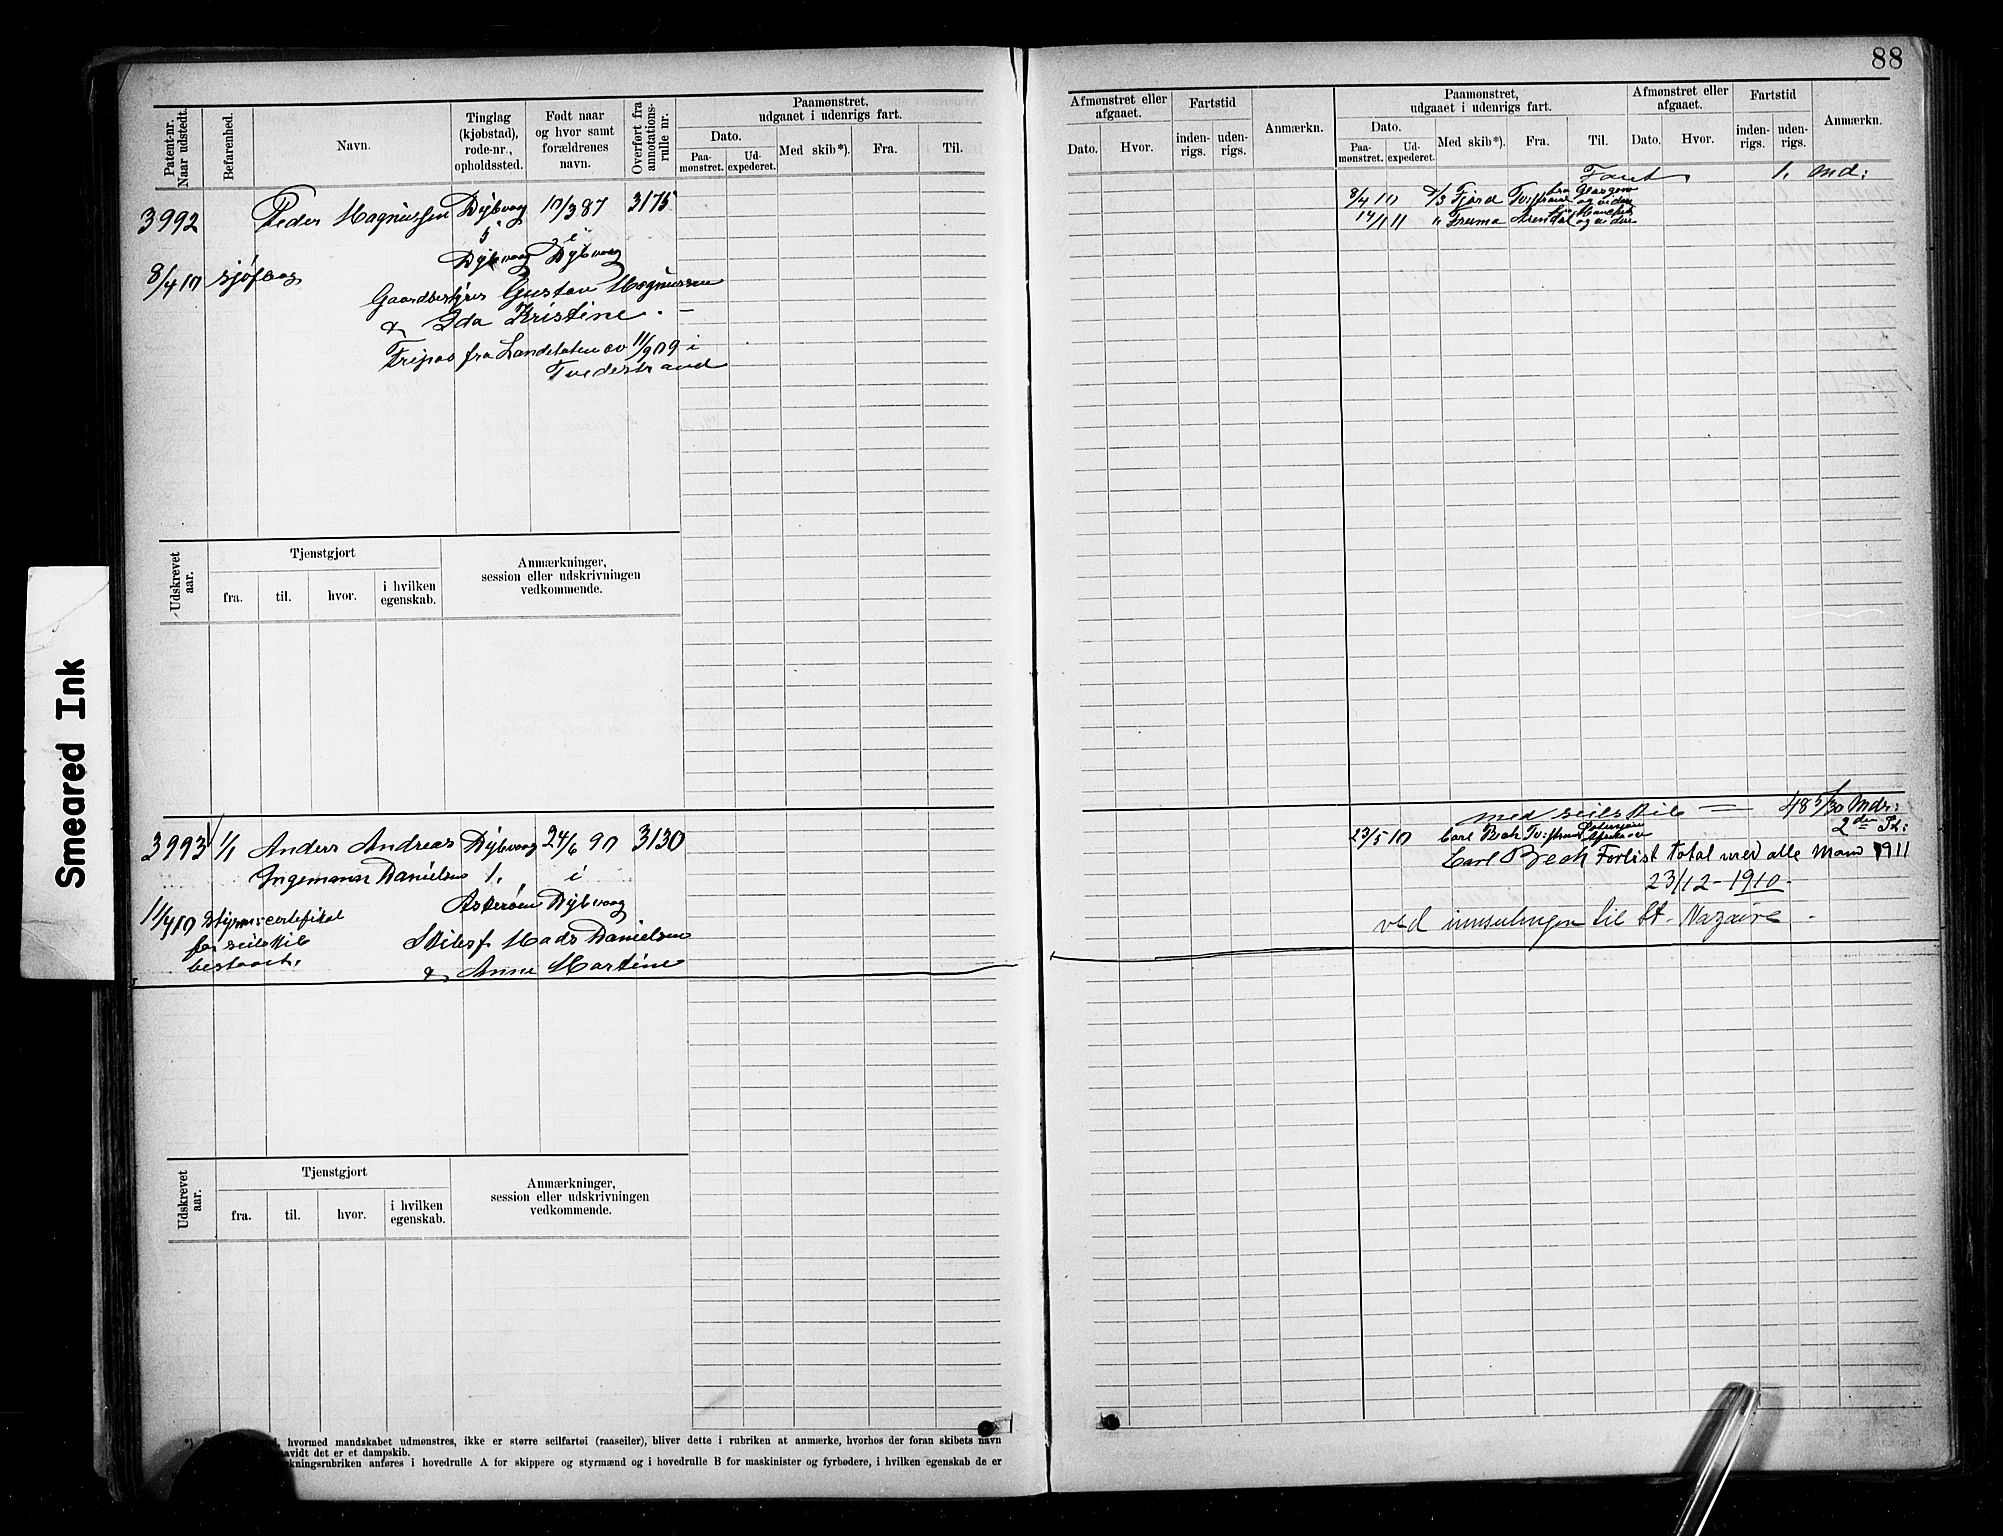 88
Patent-nr.
Naar udstedt.
Befarenhed.
Navn.
Tinglag
(kjøbstad),
rode-nr.,
opholdssted.
Født naar
og hvor samt
forældrenes
navn.
Overført fra
annotations-
rulle nr.
Paamønstret,
udgaaet i udenrigs fart.
Dato.
Paa-
mønstret.
Ud-
expederet.
Med skib*).
Fra.
Til.
Afmønstret eller
afgaaet.
Dato.
Hvor.
Fartstid
inden-
rigs.
uden-
rigs.
Anmærkn.
Paamønstret,
udgaaet i udenrigs fart.
Dato.
Paa-
mønstret.
Ud-
expederet.
Med skib*).
Fra.
Til.
Afmønstret eller
afgaaet.
Dato.
Hvor.
Fartstid
inden-
rigs.
uden-
rigs.
Anmærkn.
3992 Peder Magnussen Dybvaag 10/3 87 3175
5 i
Dybvaag Dybvaag
8/4 10 sjøfar
Gaardbestyrer Gustav Magnussen
& Ida Kristine
Fripas fra Landetaten av 11/9 09 i
Tvedestrand
1. Md:
8/4 10 Fjord Glasgow og videre
14/1 11 " Arendal og videre
Udskrevet
aar.
Tjenstgjort
fra.
til.
hvor.
i hvilken
egenskab.
Anmærkninger,
session eller udskrivningen
vedkommende.
3993 1/1 Anders Andreas Dybvaag 24/6 90 3130
Ingemann Danielsen 1. i
Askerøen Dybvaag
11/4 10 Styrm: certifikat
for seilskib
bestaaet.
Skibsf. Mads Danielsen
& Anne Martine
med seilskib = 48 5/30 Mdr:
23/5 10 Carl Bech
2den St:
Carl Bech Forlist total med alle Mand 1911
23/12 - 1910.
ved innseilingen til St. Nazaire.
Udskrevet
aar.
Tjenstgjort
fra.
til.
hvor.
i hvilken
egenskab.
Anmærkninger,
session eller udskrivningen
vedkommende.
hvormed mandskabet udmønstres, ikke er større seilfartøi (raaseiler), bliver dette i rubriken at anmærke, hvorhos der foran skibets navn
avidt det er et dampskib.
kningsrubriken anføres i hovedrulle A for skippere og styrmænd og i hovedrulle B for maskinister og fyrbødere, i hvilken egenskab de er
Smeared Ink